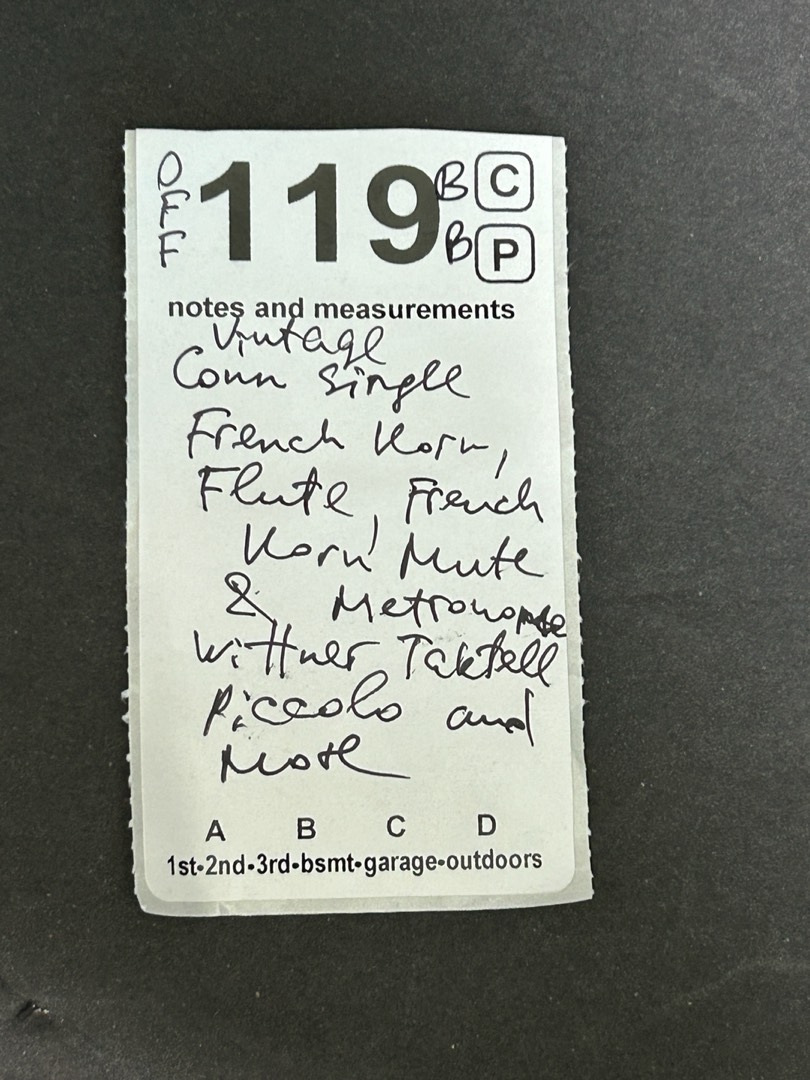 OFF 119 B C
B P
notes and measurements
Vintage
Conn Single
French Horn,
Flute, French
Horn Mute
& Metronome
Wittner Taktell
Piccolo and
More
A B C D
1st•2nd•3rd•bsmt•garage•outdoors